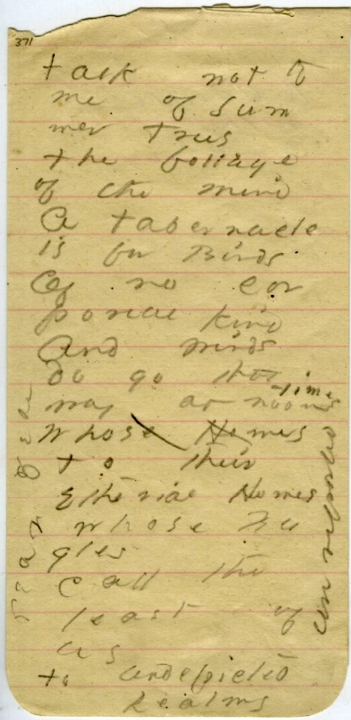 371
Talk not to
me of Sum
mer Trees
the foliage
of the mind
A tabernacle
is for Birds
Of no cor
poreal kind
And winds
do go that
time
way at noons
Whose Homes
to their
Etherial Homes
Whose Bu
gles
Call the
least of
us
to undepicted
Realms